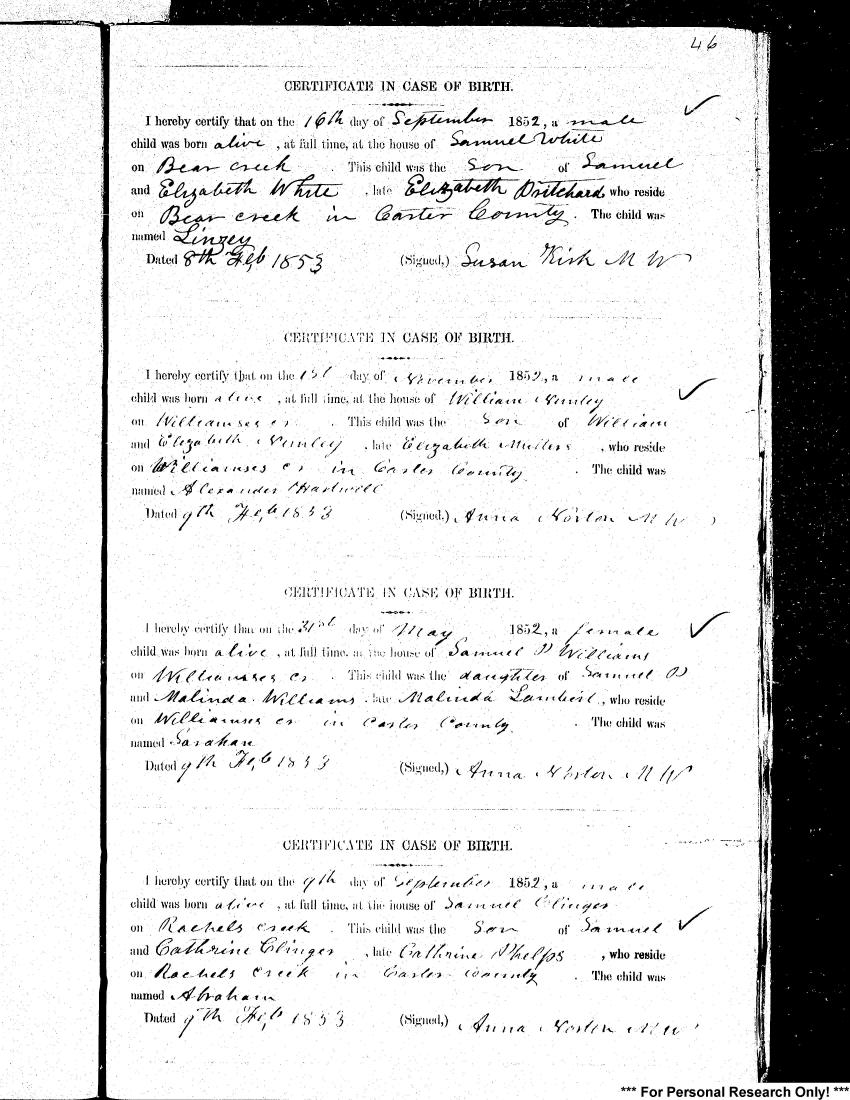 46
CERTIFICATE IN CASE OF BIRTH.
I hereby certify that on the 16th day of September 1852, a male
child was born alive , at full time, at the house of Samuel White
on Bear creek . This child was the Son of Samuel
and Elizabeth White , late Elizabeth Pritchard who reside
on Bear creek in Carter County . The child was
named Linzey
Dated 8th Feb 1853 (Signed,) Susan Kirk M W
CERTIFICATE IN CASE OF BIRTH.
I hereby certify that on the 1st day of November 1852, a male
child was born alive , at full time, at the house of William Nunley
on Williamses cr . This child was the Son of William
and Elizabeth Nunley , late Elizabeth Mullins , who reside
on Williamses cr in Carter County . The child was
named Alexander Hartwell
Dated 9th Feb 1853 (Signed,) Anna Norton M W
CERTIFICATE IN CASE OF BIRTH.
I hereby certify that on the 31st day of May 1852, a female
child was born alive , at full time, at the house of Samuel P Williams
on Williamses cr . This child was the daughter of Samuel P
and Malinda Williams , late Malinda Lambert , who reside
on Williamses cr in Carter County . The child was
named Sarahan
Dated 9th Feb 1853 (Signed,) Anna Norton M W
CERTIFICATE IN CASE OF BIRTH.
I hereby certify that on the 9th day of September 1852, a male
child was born alive , at full time, at the house of Samuel Clinger
on Rachels Creek . This child was the Son of Samuel
and Cathrine Clinger , late Cathrine Phelps , who reside
on Rachels Creek in Carter County . The child was
named Abraham
Dated 9th Feb 1853 (Signed,) Anna Norton M W
*** For Personal Research Only! ***